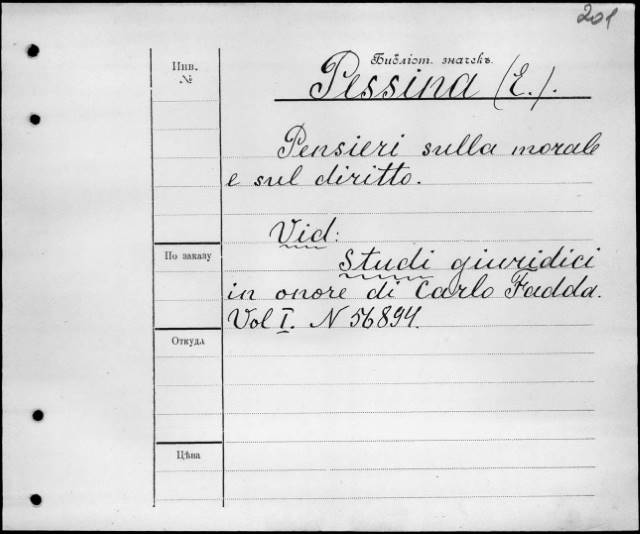 201
Инв.
№
Библіот. значекъ.
Pessina (E.).
Pensieri sulla morale
e sul diritto.
Vid:
По заказу
Studi giuridici
in onore di Carlo Fadda.
Vol I. N 56894.
Откуда
Цѣна